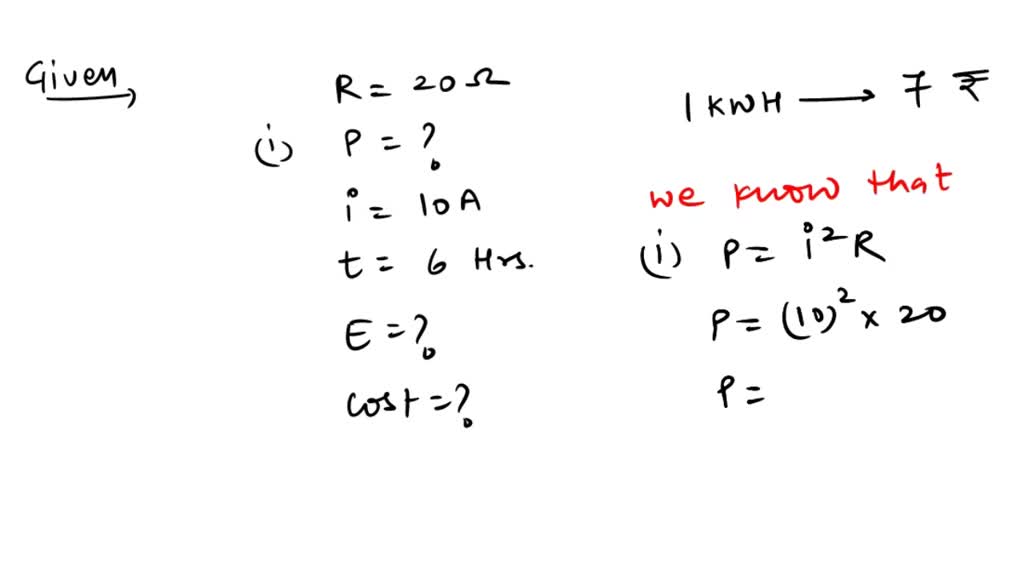 Given
R = 20 Ω
(i) P = ?
i = 10 A
t = 6 Hrs.
E = ?
cost = ?
1 KWH ⟶ 7 ₹
we know that
(i) P = i²R
P = (10)² × 20
P =